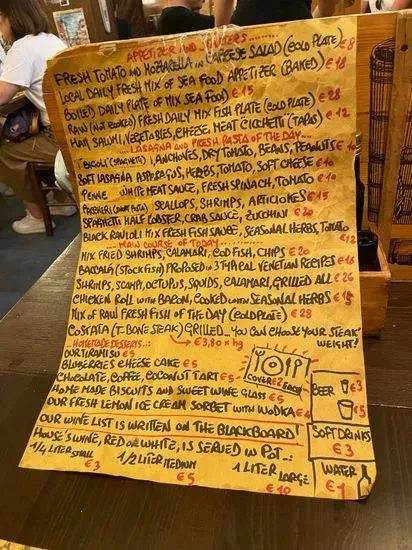 APPETIZER AND STARTERS.........
FRESH TOMATO AND MOZZARELLA IN CAPRESE SALAD (COLD PLATE) € 8
LOCAL DAILY FRESH MIX OF SEA FOOD APPETIZER (BAKED) € 18
BOILED DAILY PLATE OF MIX SEA FOOD € 15
RAW (NOT COOKED) FRESH DAILY MIX FISH PLATE (COLD PLATE) € 28
HAM, SALUMI, VEGETABLES, CHEESE, MEAT CICCHETTI (TAPAS) € 12
...LASAGNA AND FRESH PASTA OF THE DAY...
BIGOLI (SPAGHETTI), ANCHOVIES, DRY TOMATO, BEANS, PEANUTS € 10
SOFT LASAGNA ASPARAGUS, HERBS, TOMATO, SOFT CHEESE € 10
PENNE WHITE MEAT SAUCE, FRESH SPINACH, TOMATO € 10
PACCHERI (SHORT PASTA) SCALLOPS, SHRIMPS, ARTICHOKES € 15
SPAGHETTI HALF LOBSTER, CRAB SAUCE, ZUCCHINI € 20
BLACK RAVIOLI MIX FRESH FISH SAUCE, SEASONAL HERBS, TOMATO € 12
...MAIN COURSE OF TODAY...........
MIX FRIED SHRIMPS, CALAMARI, COD FISH, CHIPS € 20
BACCALÀ (STOCK FISH) PROPOSED IN 3 TYPICAL VENETIAN RECIPES € 18
SHRIMPS, SCAMPI, OCTOPUS, SQUIDS, CALAMARI, GRILLED ALL € 26
CHICKEN ROLL WITH BACON, COOKED WITH SEASONAL HERBS € 15
MIX OF RAW FRESH FISH OF THE DAY (COLD PLATE) € 28
COSTATA (T-BONE STEAK) GRILLED... YOU CAN CHOOSE YOUR STEAK WEIGHT!
€ 3,80 x hg
...HOMEMADE DESSERTS...
OUR TIRAMISU € 5
BLUBERRIES CHEESE CAKE € 5
CHOCOLATE, COFFEE, COCONUT TART € 5
HOME MADE BISCUITS AND SWEET WINE GLASS € 5
OUR FRESH LEMON ICE CREAM SORBET WITH VODKA € 4
COVER € 2 EACH
BEER € 3
€ 5
SOFT DRINKS
€ 3
WATER
€ 1
OUR WINE LIST IS WRITTEN ON THE BLACKBOARD
HOUSE'S WINE, RED OR WHITE, IS SERVED IN POT...:
1/4 LITER SMALL € 3
1/2 LITER MEDIUM € 5
1 LITER LARGE € 10